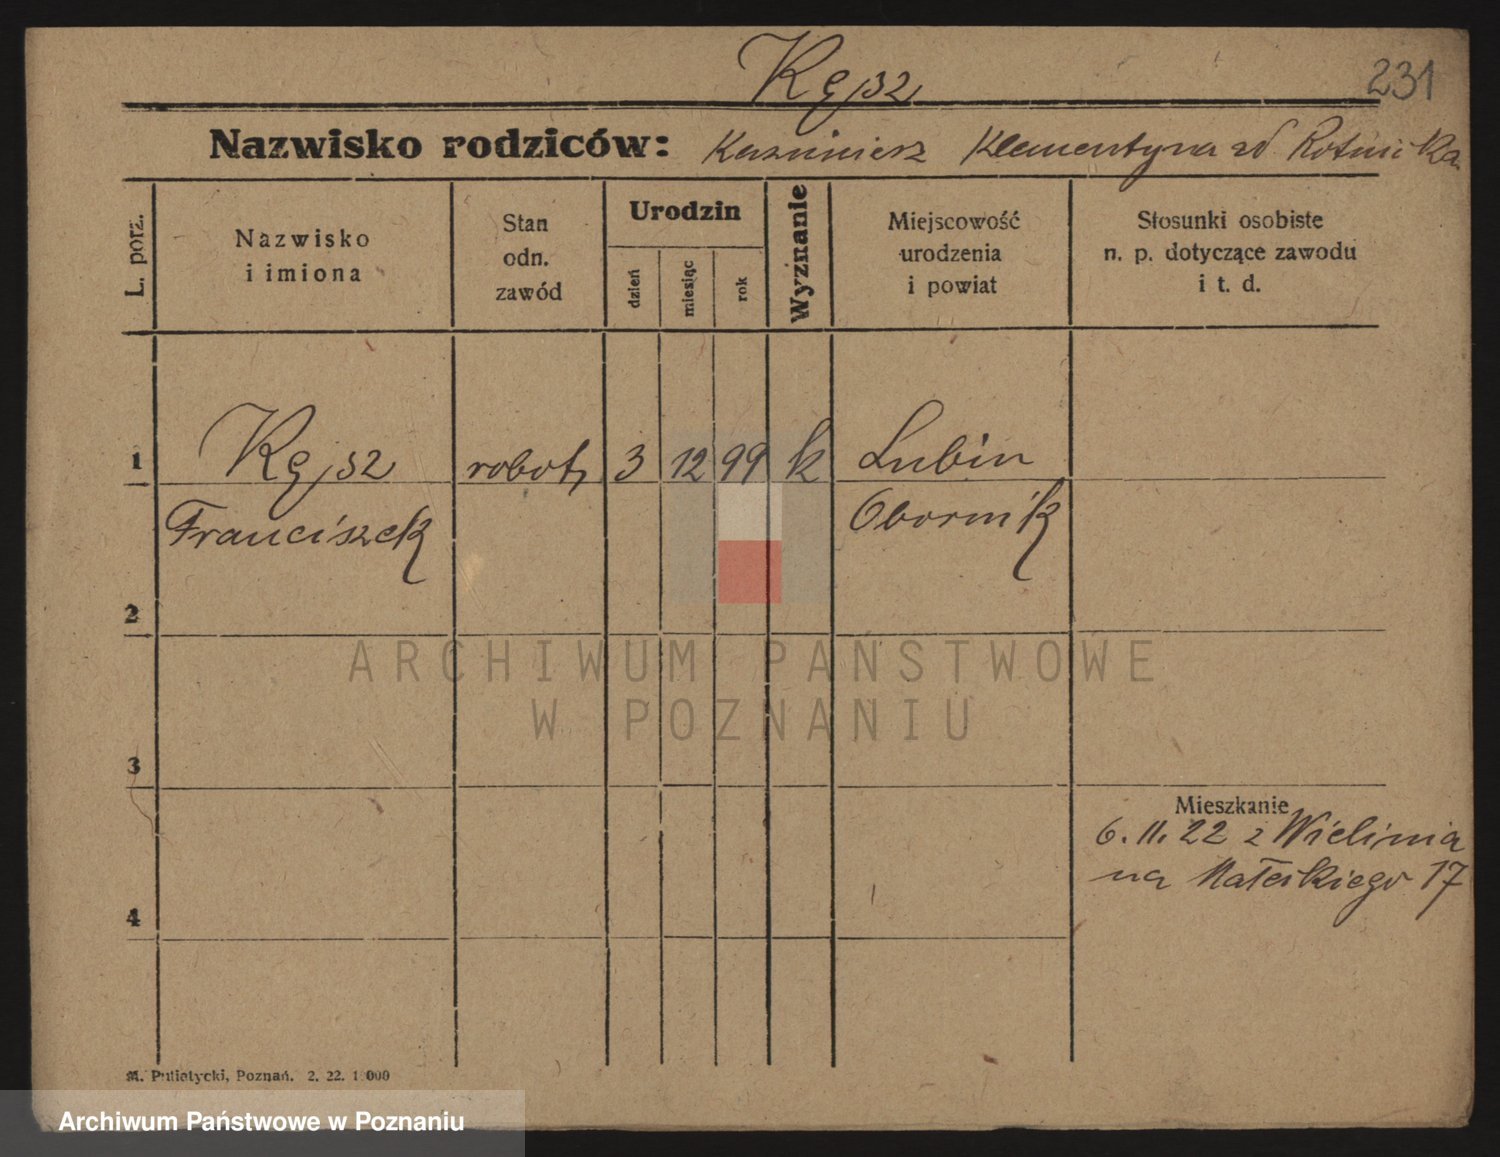 Kęjsz
231
Nazwisko rodziców: Kazimierz Klementyna zd
L. porz.
Nazwisko
i imiona
Stan
odn.
zawód
Urodzin
dzień
miesiąc
rok
Wyznanie
Miejscowość
urodzenia
i powiat
Stosunki osobiste
n. p. dotyczące zawodu
i t. d.
1 Kęjsz robotn 3 12 99 k Lubin
Franciszek Obornik
2
ARCHIWUM PAŃSTWOWE
W POZNANIU
3
Mieszkanie
6. 11. 22 z
na 17
4
M. Putiatycki, Poznań. 2. 22. 1.000
Archiwum Państwowe w Poznaniu